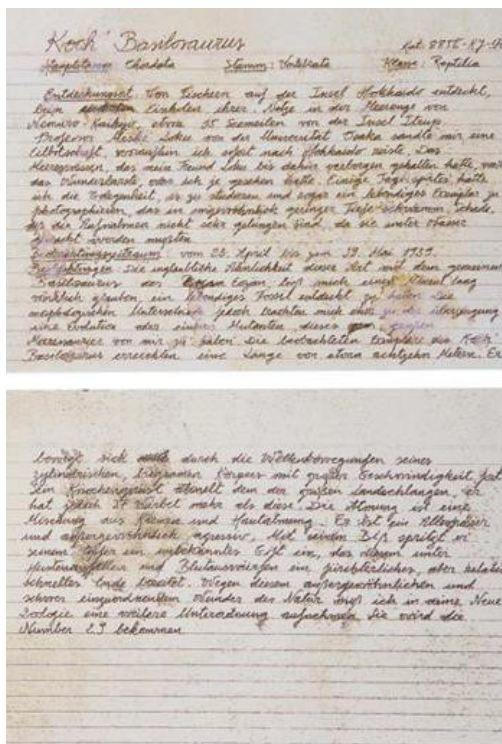 Koch' Basilosaurus
Kat: 8856-K7
Hauptstamm: Chordata Stamm: Vertebrata Klasse: Reptilia
Entdeckungsort: Von Fischern auf der Insel Hokkaido entdeckt,
beim Einholen ihrer Netze in der Meerenge von
Nemuro Kaikyo, etwa 35 Seemeilen von der Insel Iturup.
Professor Ideski Loku von der Universität Osaka sandte mir eine
Eilbotschaft, woraufhin ich sofort nach Hokkaido reiste. Das
Meereswesen, das mein Freund Loku bis dahin verborgen gehalten hatte, war
das Wunderbarste, was ich je gesehen hatte. Einige Tage später hatte
ich die Gelegenheit, es zu studieren und sogar ein lebendiges Exemplar zu
photographieren, das in ungewöhnlich geringer Tiefe schwamm. Schade,
daß die Aufnahmen nicht sehr gelungen sind, da sie unter Wasser
gemacht werden mußten.
Beobachtungszeitraum: vom 28. April bis zum 19. Mai
Die unglaubliche Ähnlichkeit dieser Art mit dem gemeinen
Basilosaurus des Eozän ließ mich einen Moment lang
wirklich glauben, ein lebendiges Fossil entdeckt zu haben. Die
morphologischen Unterschiede jedoch brachten mich zu der Überzeugung
eine Evolution oder einen Mutanten dieses großen
Meeressaurier vor mir zu haben. Die beobachteten Exemplare des Koch'
Basilosaurus erreichten eine Länge von etwa achtzehn Metern. Er
bewegt sich durch die Wellenbewegungen seines
zylindrischen, biegsamen Körpers mit großer Geschwindigkeit fort.
Sein Knochengerüst ähnelt dem der großen Landschlangen, er
hat jedoch 37 Wirbel mehr als diese. Die Atmung ist eine
Mischung aus Kiemen und Hautatmung. Es ist ein Allesfresser
und außergewöhnlich agressiv. Mit seinem Biß spritzt er
seinem Opfer ein unbekanntes Gift ein, das diesem unter
und Blutauswürfen ein fürchterliches, aber
schnelles Ende bereitet. Wegen diesem außergewöhnlichen und
schwer einzuordnenden Wunder der Natur muß ich in meine Neue
Zoologie eine weitere Unterordnung aufnehmen. Sie wird die
Nummer 29 bekommen.